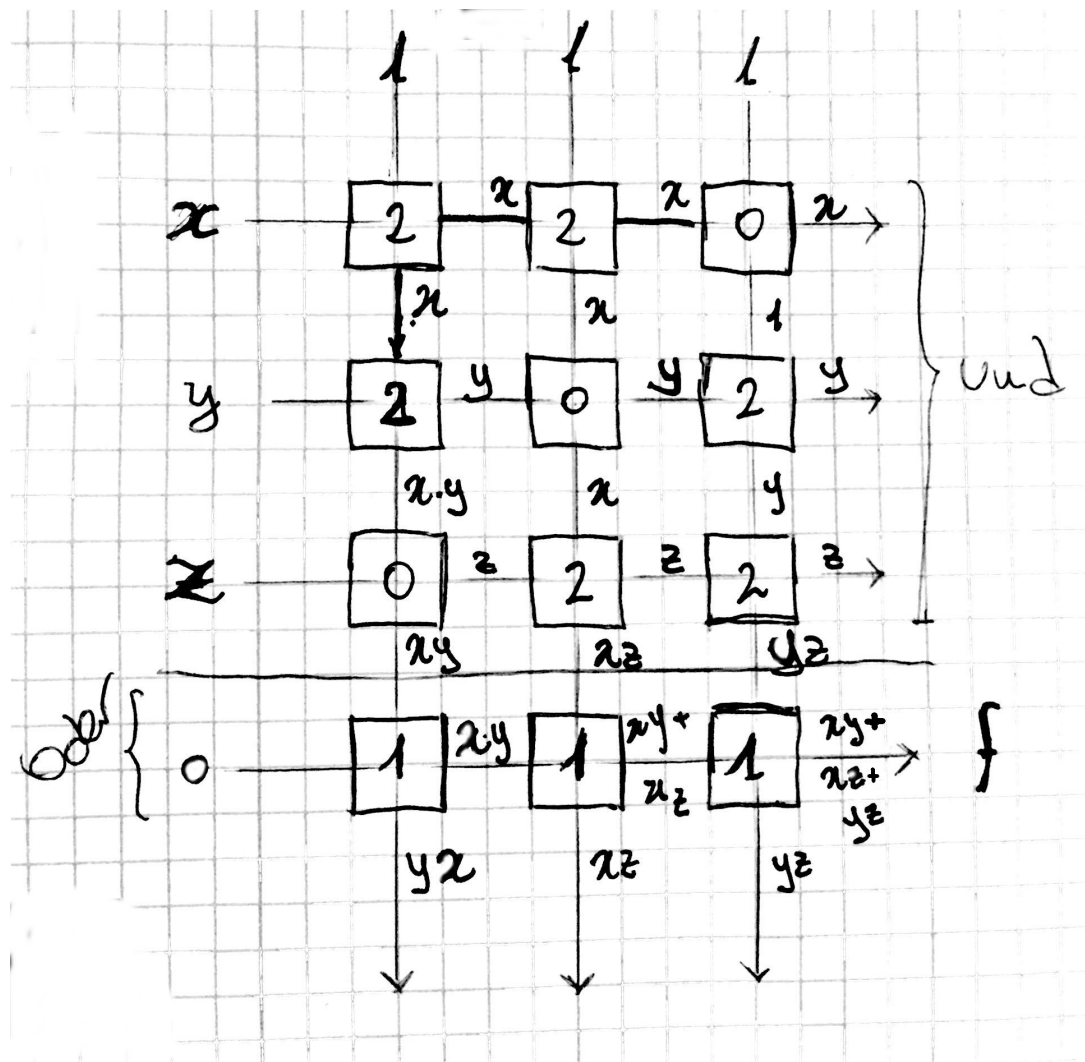 1 1 1
x 2 x 2 x 0 x
x x 1
y 2 y 0 y 2 y
Und
x·y x y
z 0 z 2 z 2 z
xy xz yz
Oder 0 1 x·y 1 xy+ xz 1 xy+ xz+ yz f
yx xz yz